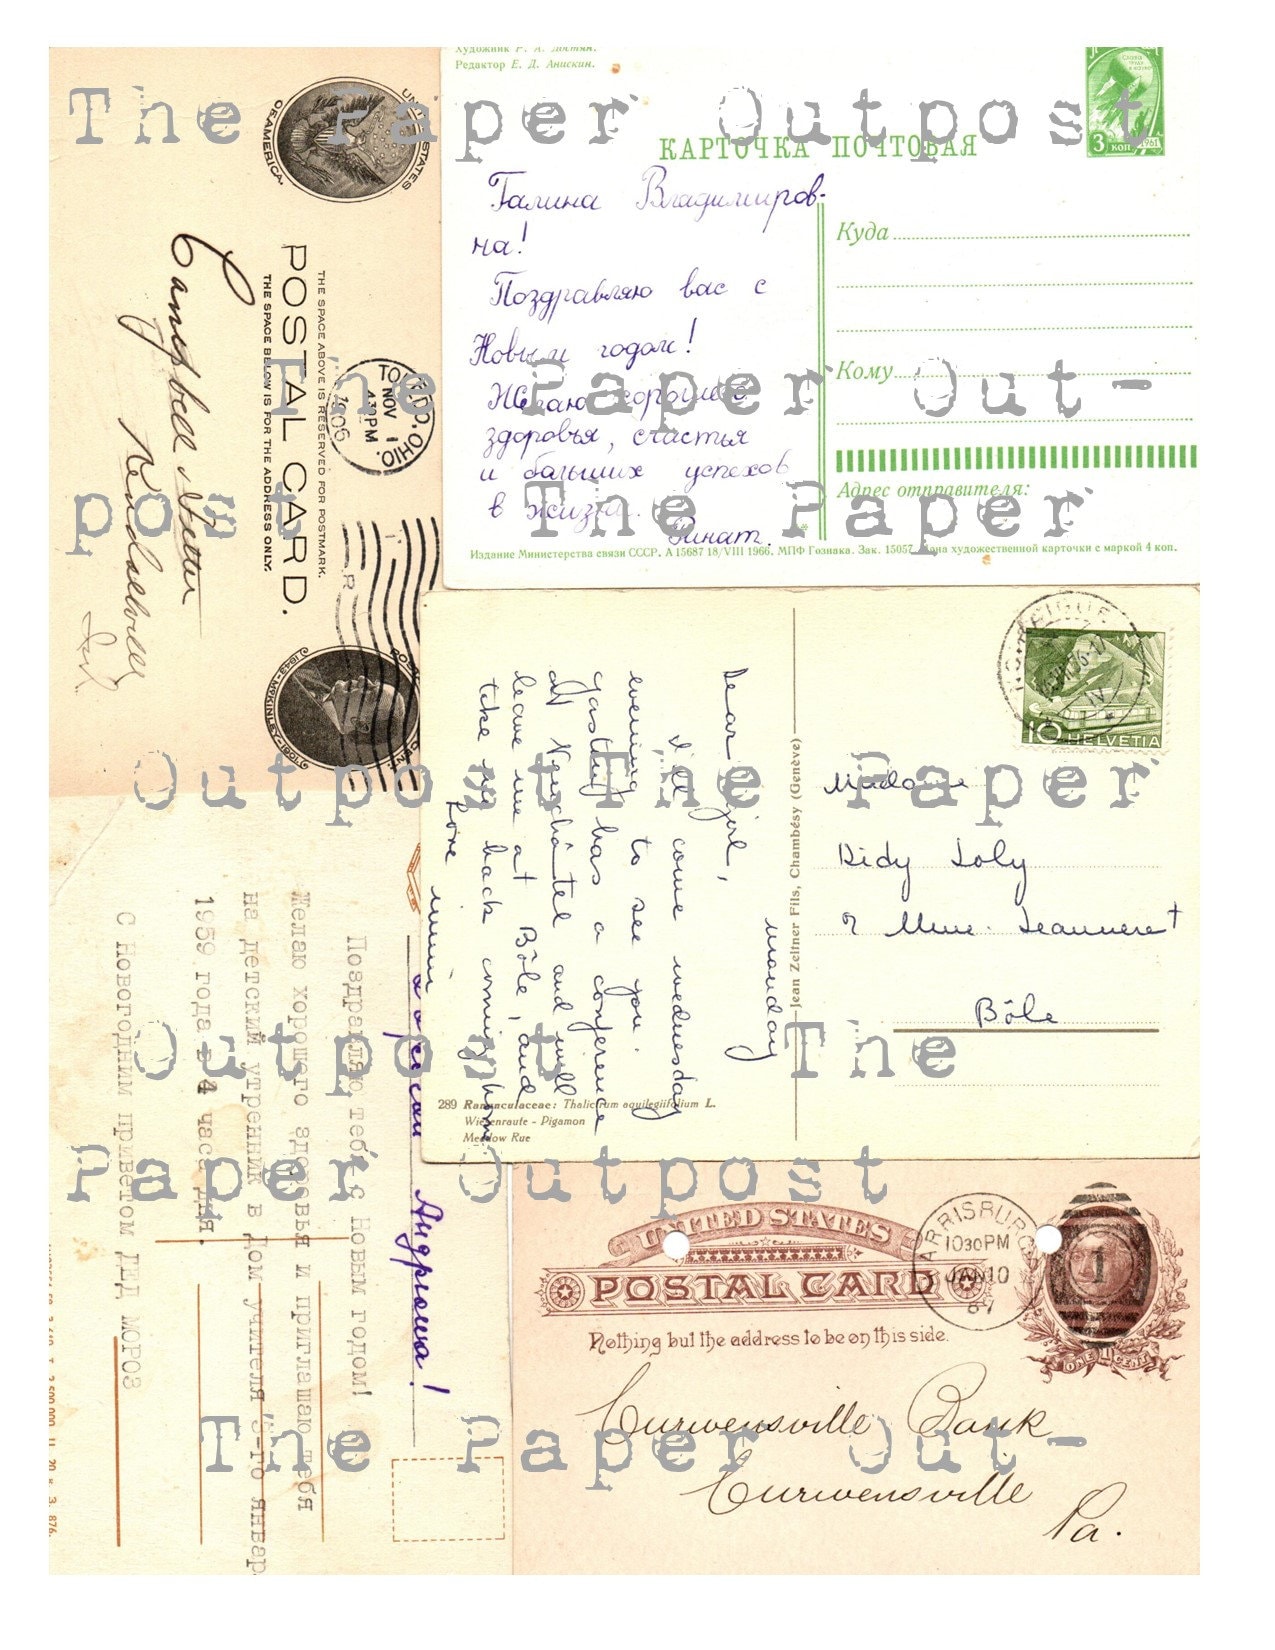 Художник Р. А.
Редактор Е. Д. Анискин.
КАРТОЧКА ПОЧТОВАЯ
3 КОП 1961
Галина Владимиров-
на!
Поздравляю вас с
Новым годом!
Желаю хорошего
здоровья, счастья
и больших успехов
в жизни.
Ринат.
Куда
Кому
Адрес отправителя:
Издание Министерства связи СССР. А 15687 18/VIII 1966. МПФ Гознака. Зак. 15057. Цена художественной карточки с маркой 4 коп.
UNITED STATES
OF AMERICA.
THE SPACE ABOVE IS RESERVED FOR POSTMARK.
POSTAL CARD.
THE SPACE BELOW IS FOR THE ADDRESS ONLY.
TOLEDO, OHIO.
NOV 1
4 30 PM
1906
1843-McKINLEY-1901
Campbell &
Kendallville
Ind
monday
Dear girl,
I'll come wednesday
evening to see you.
Gaston has a conference
at Neuchâtel and will
leave me at Bôle, and
take me back coming home
Love
mimi
Jean Zeltner Fils, Chambésy (Genève)
10 HELVETIA
Madame
Didy Joly
Mme. Jeanneret
Bôle
289 Ranunculaceae: Thalictrum aquilegiifolium L.
Wiesenraute - Pigamon
Meadow Rue
дорогой Андрюша!
Поздравляю тебя с Новым годом!
Желаю хорошего здоровья и приглашаю тебя
на детский утренник в Дом учителя 3-го январ
1959 года в 4 часа дня.
С Новогодним приветом ДЕД МОРОЗ
UNITED STATES
POSTAL CARD
Nothing but the address to be on this side.
HARRISBURG
10 30 PM
JAN 10
87
1
ONE CENT
Curwensville Bank
Curwensville
Pa.
The Paper Outpost
The Paper Out-
post The Paper
Outpost The Paper
Outpost The
Paper Outpost
The Paper Out-